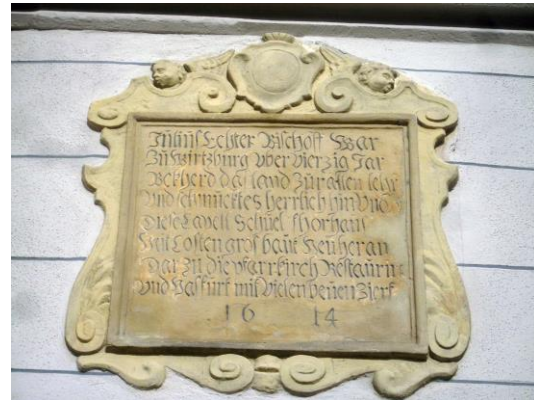 Julius Echter Bischoff War
Zu Wirtzburg vber vierzig Jar
Bekherd das land Zur alten lehr
Vnd schmucktes herrlich hin vnd
Diese Capell Schuel
Mit Costen gros baut Neu heran
Dar Zu die Pfarrkirch
Vnd Hasfurt mit Vielen Zierf
16 14